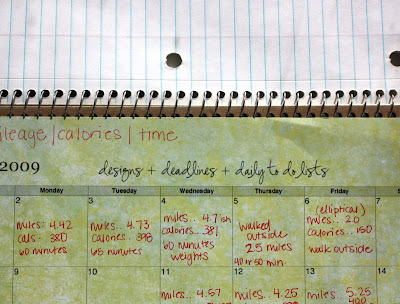 ileage/calories/time
2009 designs + deadlines + daily to do lists
Monday Tuesday Wednesday Thursday Friday
2 3 4 5 6
miles: 4.42
cals: 380
60 minutes
miles... 4.73
calories... 398
65 minutes
miles... 4.7ish
calories... 381
60 minutes
weights
walked
outside
2.5 miles
40 or 50 min.
(elliptical)
miles... 2.0
calories... 150
walk outside
10 11 12 13 14
miles... 4.57
miles... 4.25
miles 5.25